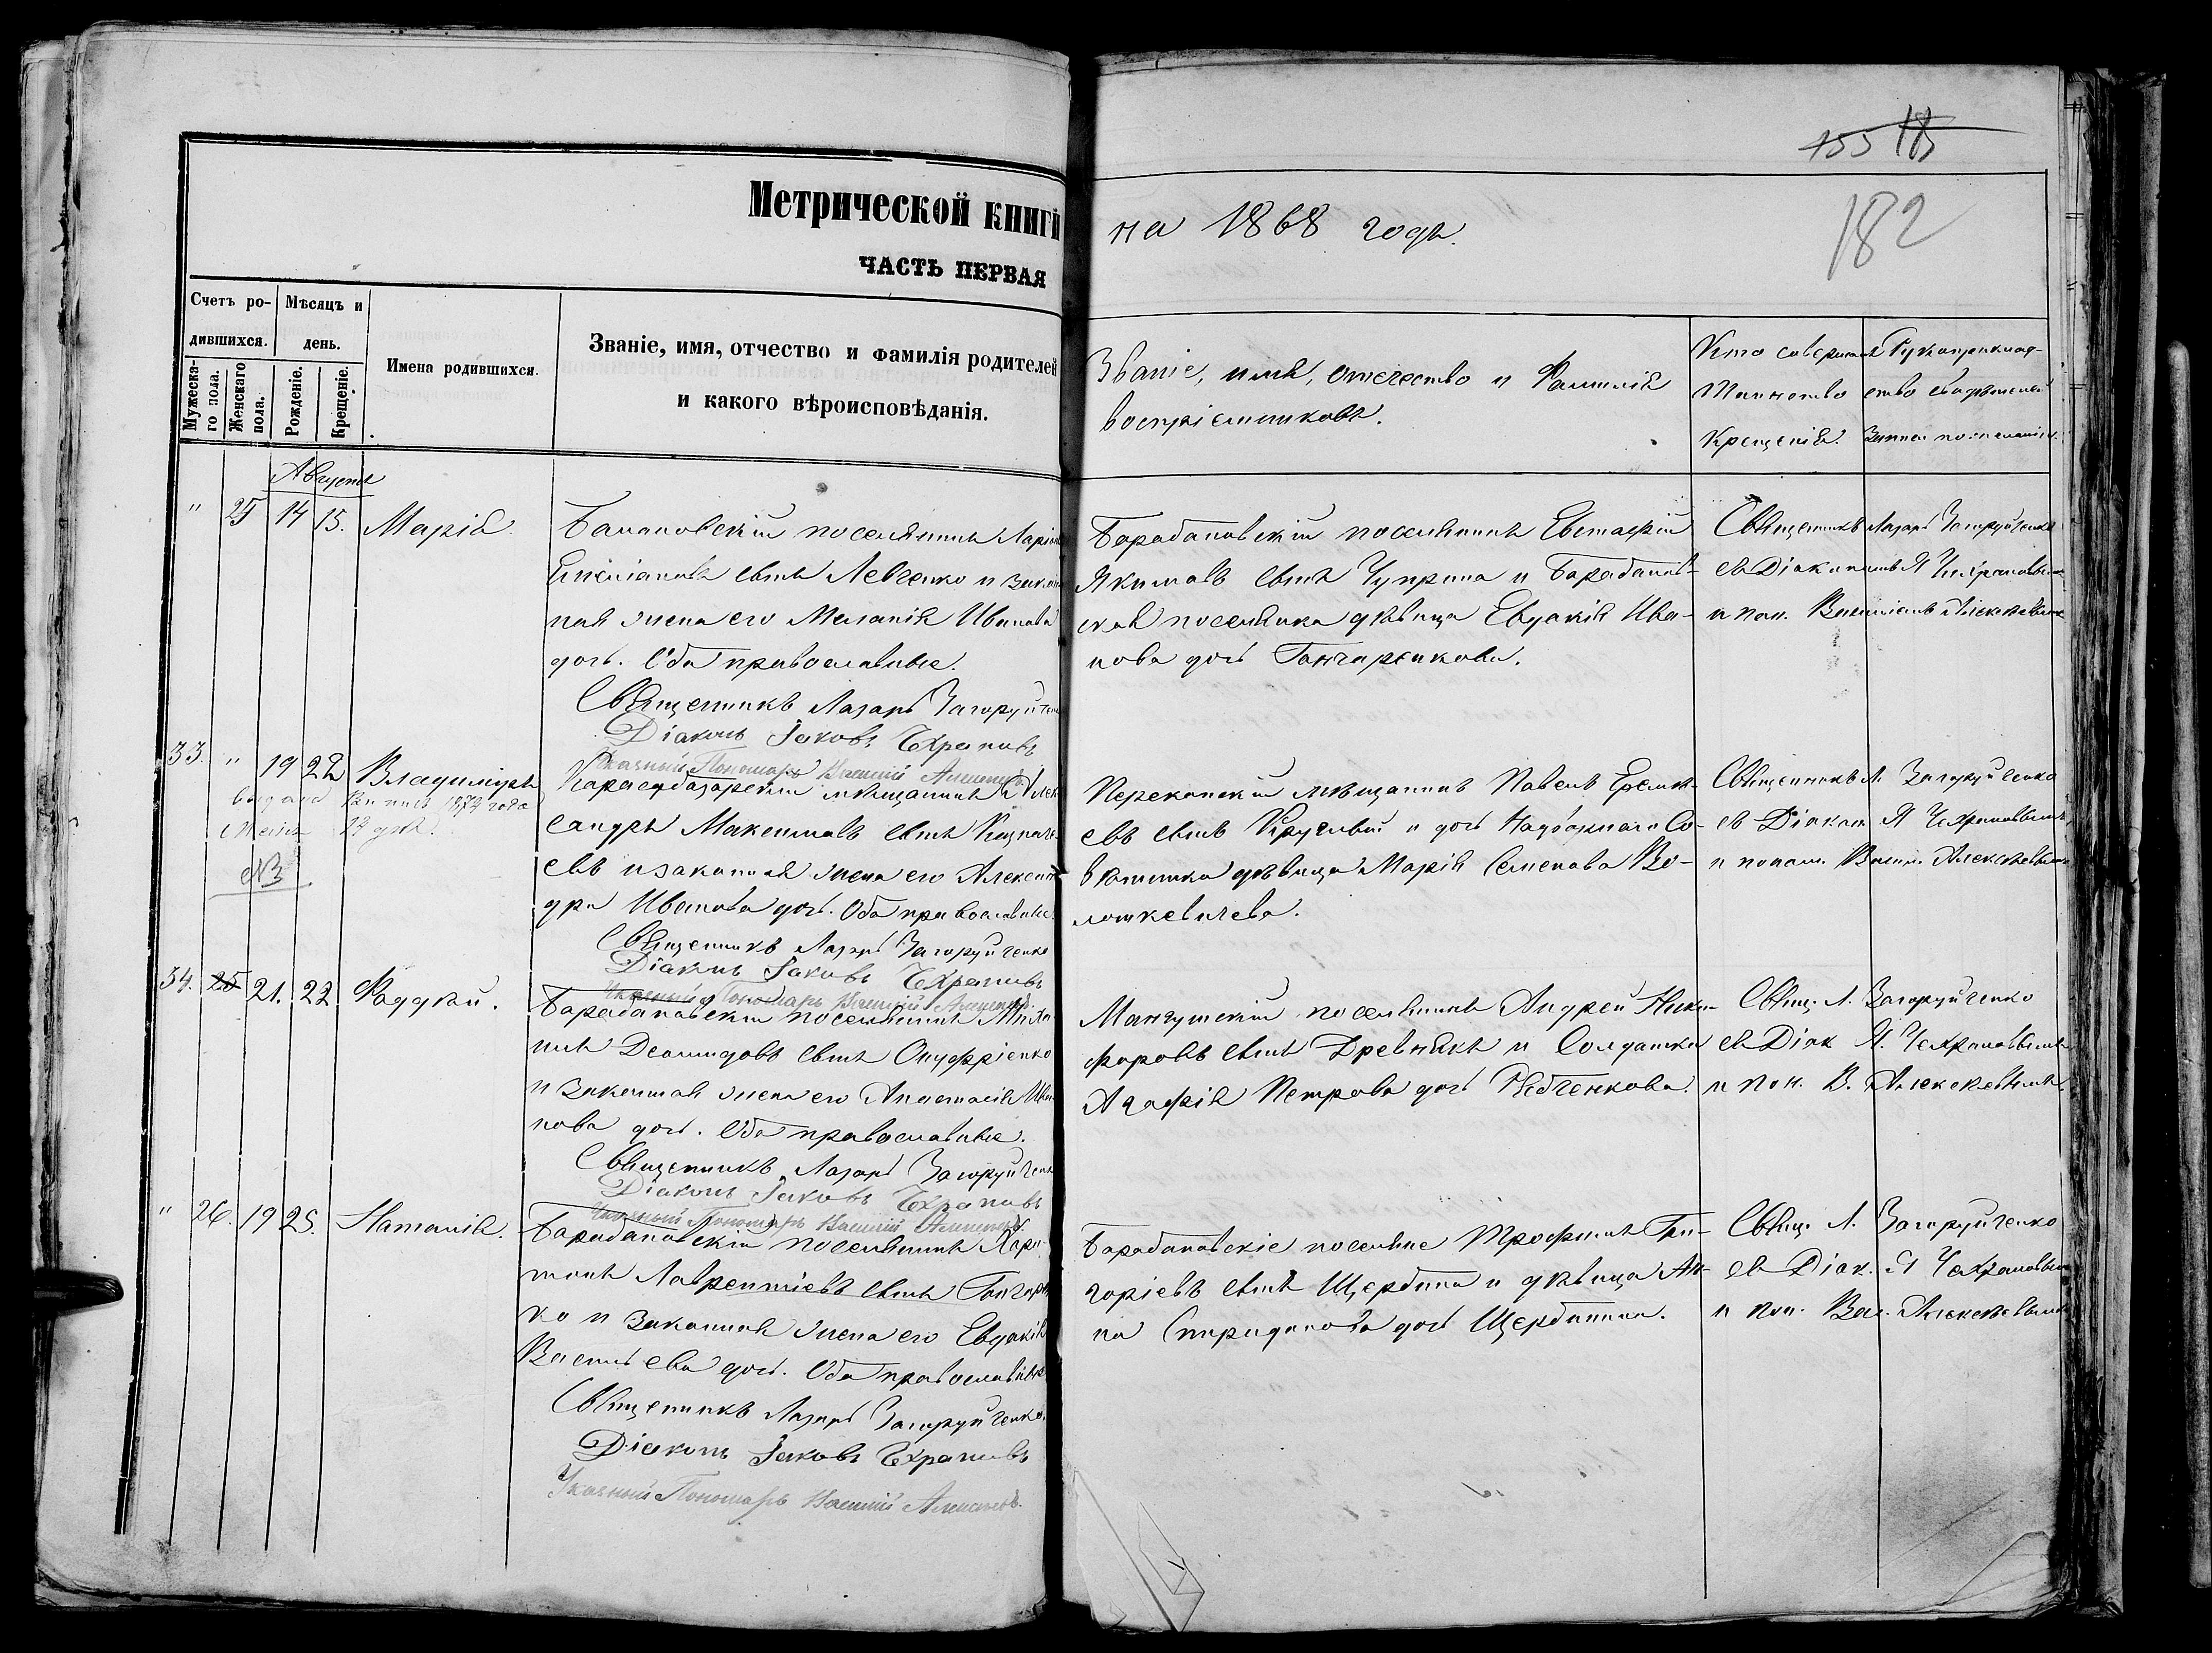 Метрической книги
на 1868 годъ.
155
182
ЧАСТЬ ПЕРВАЯ
Счетъ ро-
дившихся.
Мужеска-
го пола.
Женскаго
пола.
Мѣсяцъ и
день.
Рожденіе.
Крещеніе.
Имена родившихся.
Званіе, имя, отчество и фамилія родителей
и какого вѣроисповѣданія.
Званіе, имя, отечество и Фамилія
воспріемниковъ.
Кто совершалъ
Таинство
Крещенія.
Рукоприклад-
ство свидѣтелей
записи по желанію.
Августъ
" 25 14 15. Марія.
поселянинъ
сынъ Левченко и закон
ная жена его Меланія Иванова
дочь. Оба православные.
Священникъ Лазарь Загоруйченко
Діаконъ Іаковъ Чехрановъ
Указный Пономарь Василій Алексѣевъ
Барабановскій поселянинъ Евстафій
Якимовъ сынъ Чуприна и Барабанов-
ская поселянка дѣвица Евдокія Ива-
нова дочь Гончаренкова.
Священникъ Лазарь Загоруйченко
съ Діакономъ Я Чехрановымъ
и пон. Василіемъ Алексѣевымъ
33. " 19 22 Владиміръ
Карасубазарскій мѣщанинъ Алек
сандръ Максимовъ сынъ
евъ и законная жена его Алексан
дра Иванова дочь. Оба православные.
Священникъ Лазарь Загоруйченко
Діаконъ Іаковъ Чехрановъ
Указный Пономарь Василій Алексѣевъ
выдана
27 дня.
№3
Перекопскій мѣщанинъ Павелъ Еремѣ-
евъ сынъ Круглый и дочь Надворнаго Со-
вѣтника дѣвица Марія Семенова Во-
лошкевичева.
Священникъ Л. Загоруйченко
съ Діакон. Я Чехрановымъ
и поном. Васил. Алексѣевымъ
34. 25 21. 22 Фаддѣй.
Барабановскій поселянинъ Миха
илъ Деомидовъ сынъ Онуфріенко
и законная жена его Анастасія Ива
нова дочь. Оба православные.
Священникъ Лазарь Загоруйченко
Діаконъ Іаковъ Чехрановъ
Указный Пономарь Василій Алексѣевъ
Мангушскій поселянинъ Андрей Ники-
форовъ сынъ Древнякъ и Солдатка
Агафія Петрова дочь Рябченкова.
Свящ. Л. Загоруйченко
съ Діак Я. Чехрановымъ
и пон. В. Алексѣевымъ
" 26. 19 25. Наталія.
Барабановскій поселянинъ Хари
тонъ Лаврентіевъ сынъ Гончарен
ко и законная жена его Евдокія
Васильева дочь. Оба православные
Священникъ Лазарь Загоруйченко
Діаконъ Іаковъ Чехрановъ
Указный Пономарь Василій Алексѣевъ.
Барабановскіе поселяне Трофимъ Гри-
горіевъ сынъ Щербина и дѣвица Ан-
на Спиридонова дочь Щербинина.
Свящ. Л. Загоруйченко
съ Діак. Я Чехрановымъ
и пон. Вас. Алексѣевымъ